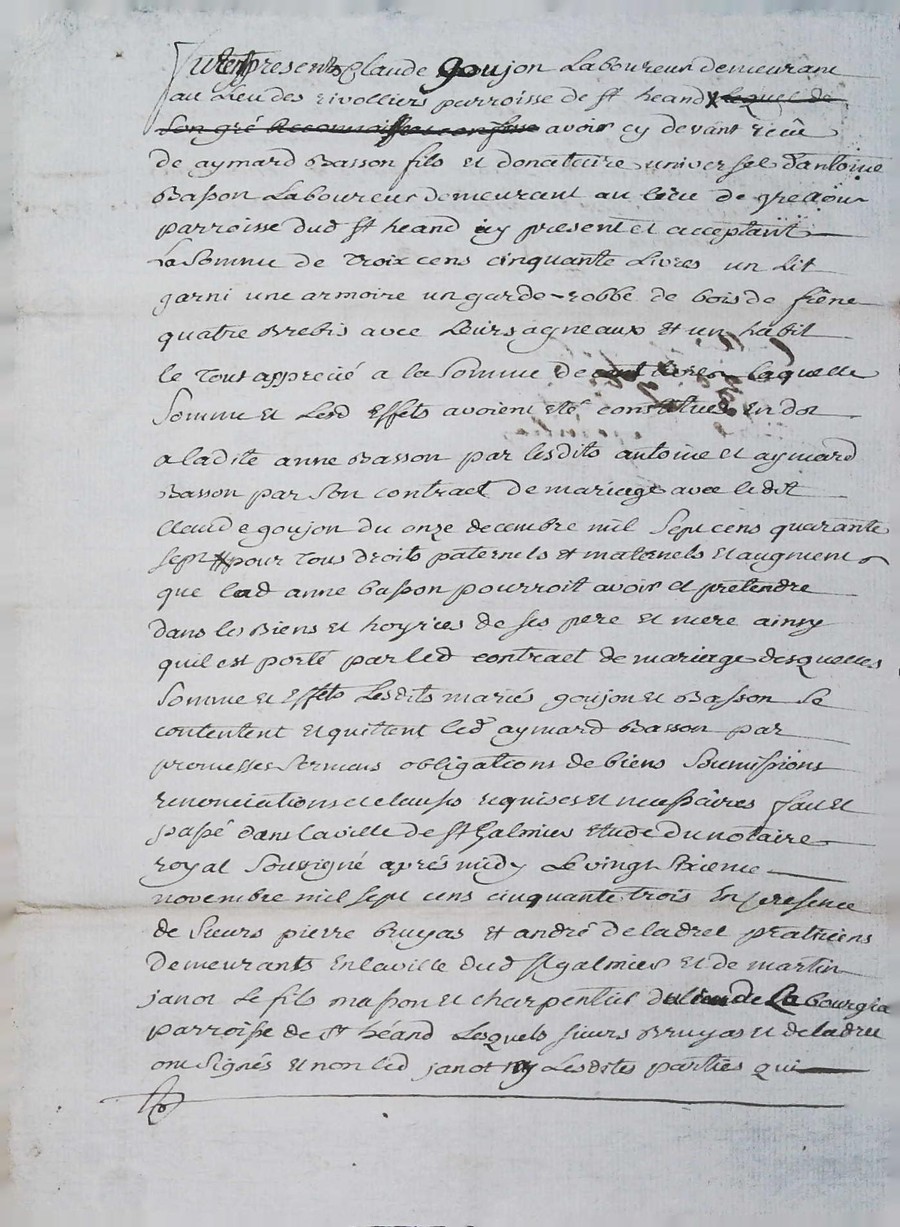 Furent presents Claude goujon Laboureur demeurant
au Lieu des rivolliers parroisse de st heand X lequel de
son gré a reconnu et confessé avoir cy devant receû
de aymard Basson fils et donataire universel d'antoine
Basson Laboureur demeurant au lieu de
parroisse dud st heand icy present et acceptant
La Somme de Troix cens cinquante Livres un Lit
garni une armoire un garde-robbe de bois de frêne
quatre Brebis avec Leurs agneaux et un habit
le Tout apprecié a la Somme de cent livres Laquelle
Somme et Lesd Effets avoient eté constitués En dot
a ladite anne Basson par lesdits antoine et aymard
Basson par Son contract de mariage avec ledit
Claude goujon du onze decembre mil Sept cens quarante
sept pour Tous droits paternels et maternels et augment
que lad anne basson pourroit avoir et pretendre
dans les Biens et hoyries de ses pere et mere ainsy
quil est porté par led contract de mariage desquelles
Somme et Effets Lesdits mariés goujon et Basson se
contentent et quittent led aymard Basson par
promesses Serment obligations de biens Soumissions
renonciations et clauses requises et necessaires fait et
passé dans la ville de st Galmier Etude du notaire
royal Soussigné aprés midy Le vingt Sixieme
novembre mil sept cens cinquante trois En presence
de Sieurs pierre bruyas et andré deladret praticiens
demeurants En la ville dud st galmier et de martin
janot Le fils masson et charpentier de La bourgia
parroisse de st héand Lesquels sieurs Bruyas et deladret
ont Signés et non led janot ny Lesdites parties qui